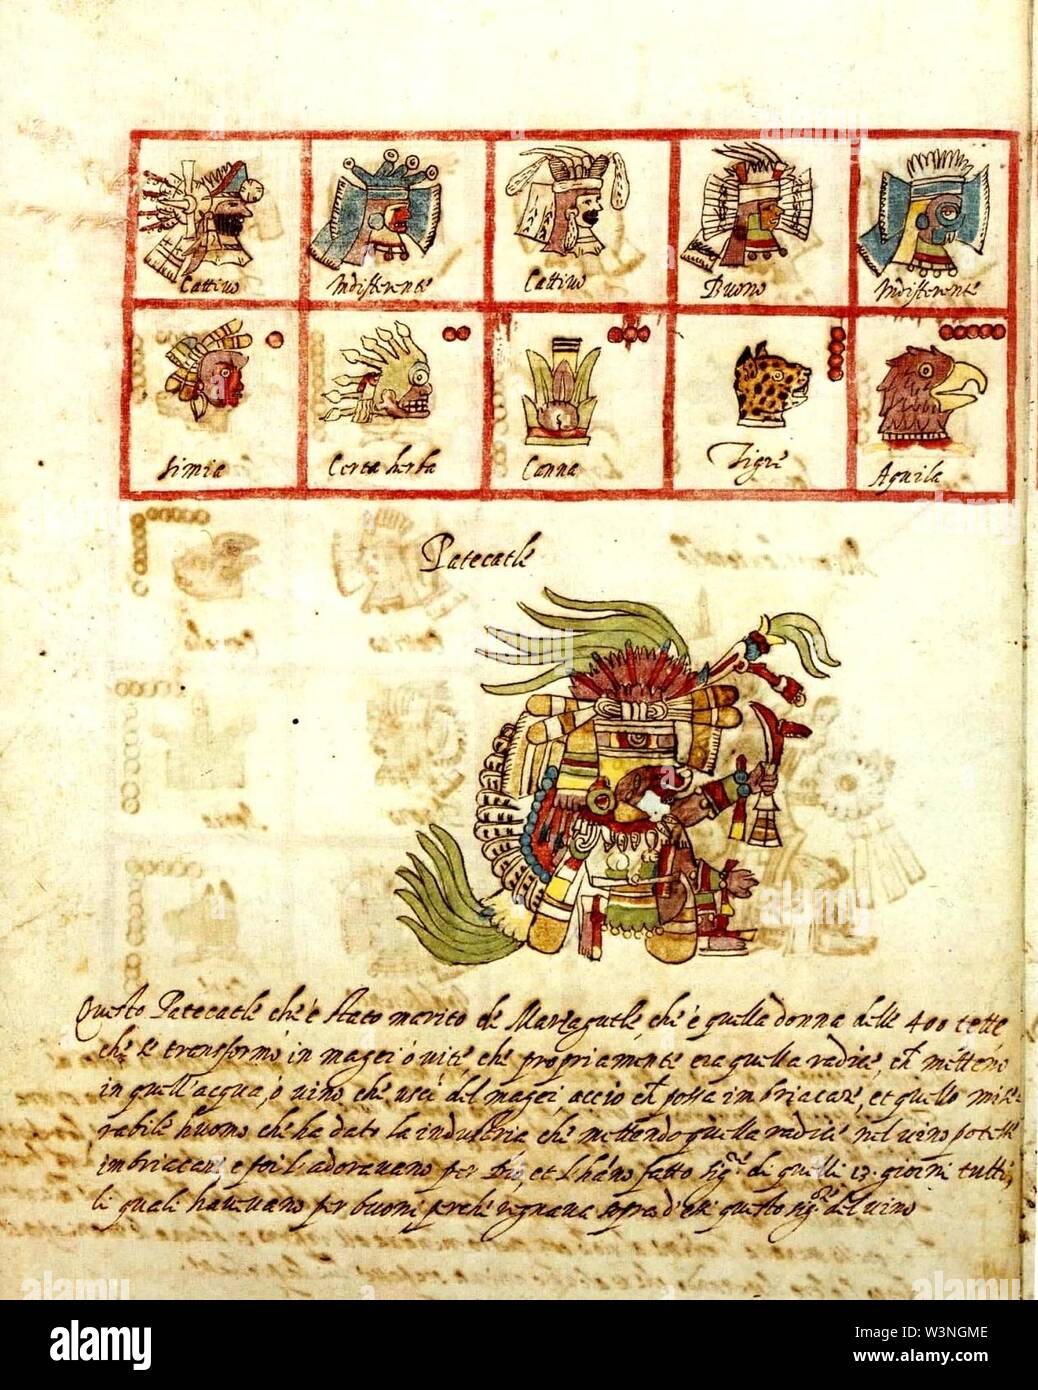 Cattivo Indifferente Cattivo Buono Indifferente
Simia Certa herba Canna Tigre Aquila
Patecatle
Questo Patecatle che è stato marito de che è quella donna delle 400 tette
che se transformò in magei ò vite, che propriamente era quella radice, ch metteno
in quell'acqua, ò vino che usce del magei, acciò ch possa imbriacare, et quello mise
rabile huomo che ha dato la industria che mettendo quella radice nel vino
imbriacar e poi l'adoravano per Dio, et l'hano fatto sig.re di quelli 13 giorni tutti,
li quali havevano per buoni perche regnava sopra d'essi questo sig.re del vino
alamy
Image ID: W3NGME
www.alamy.com